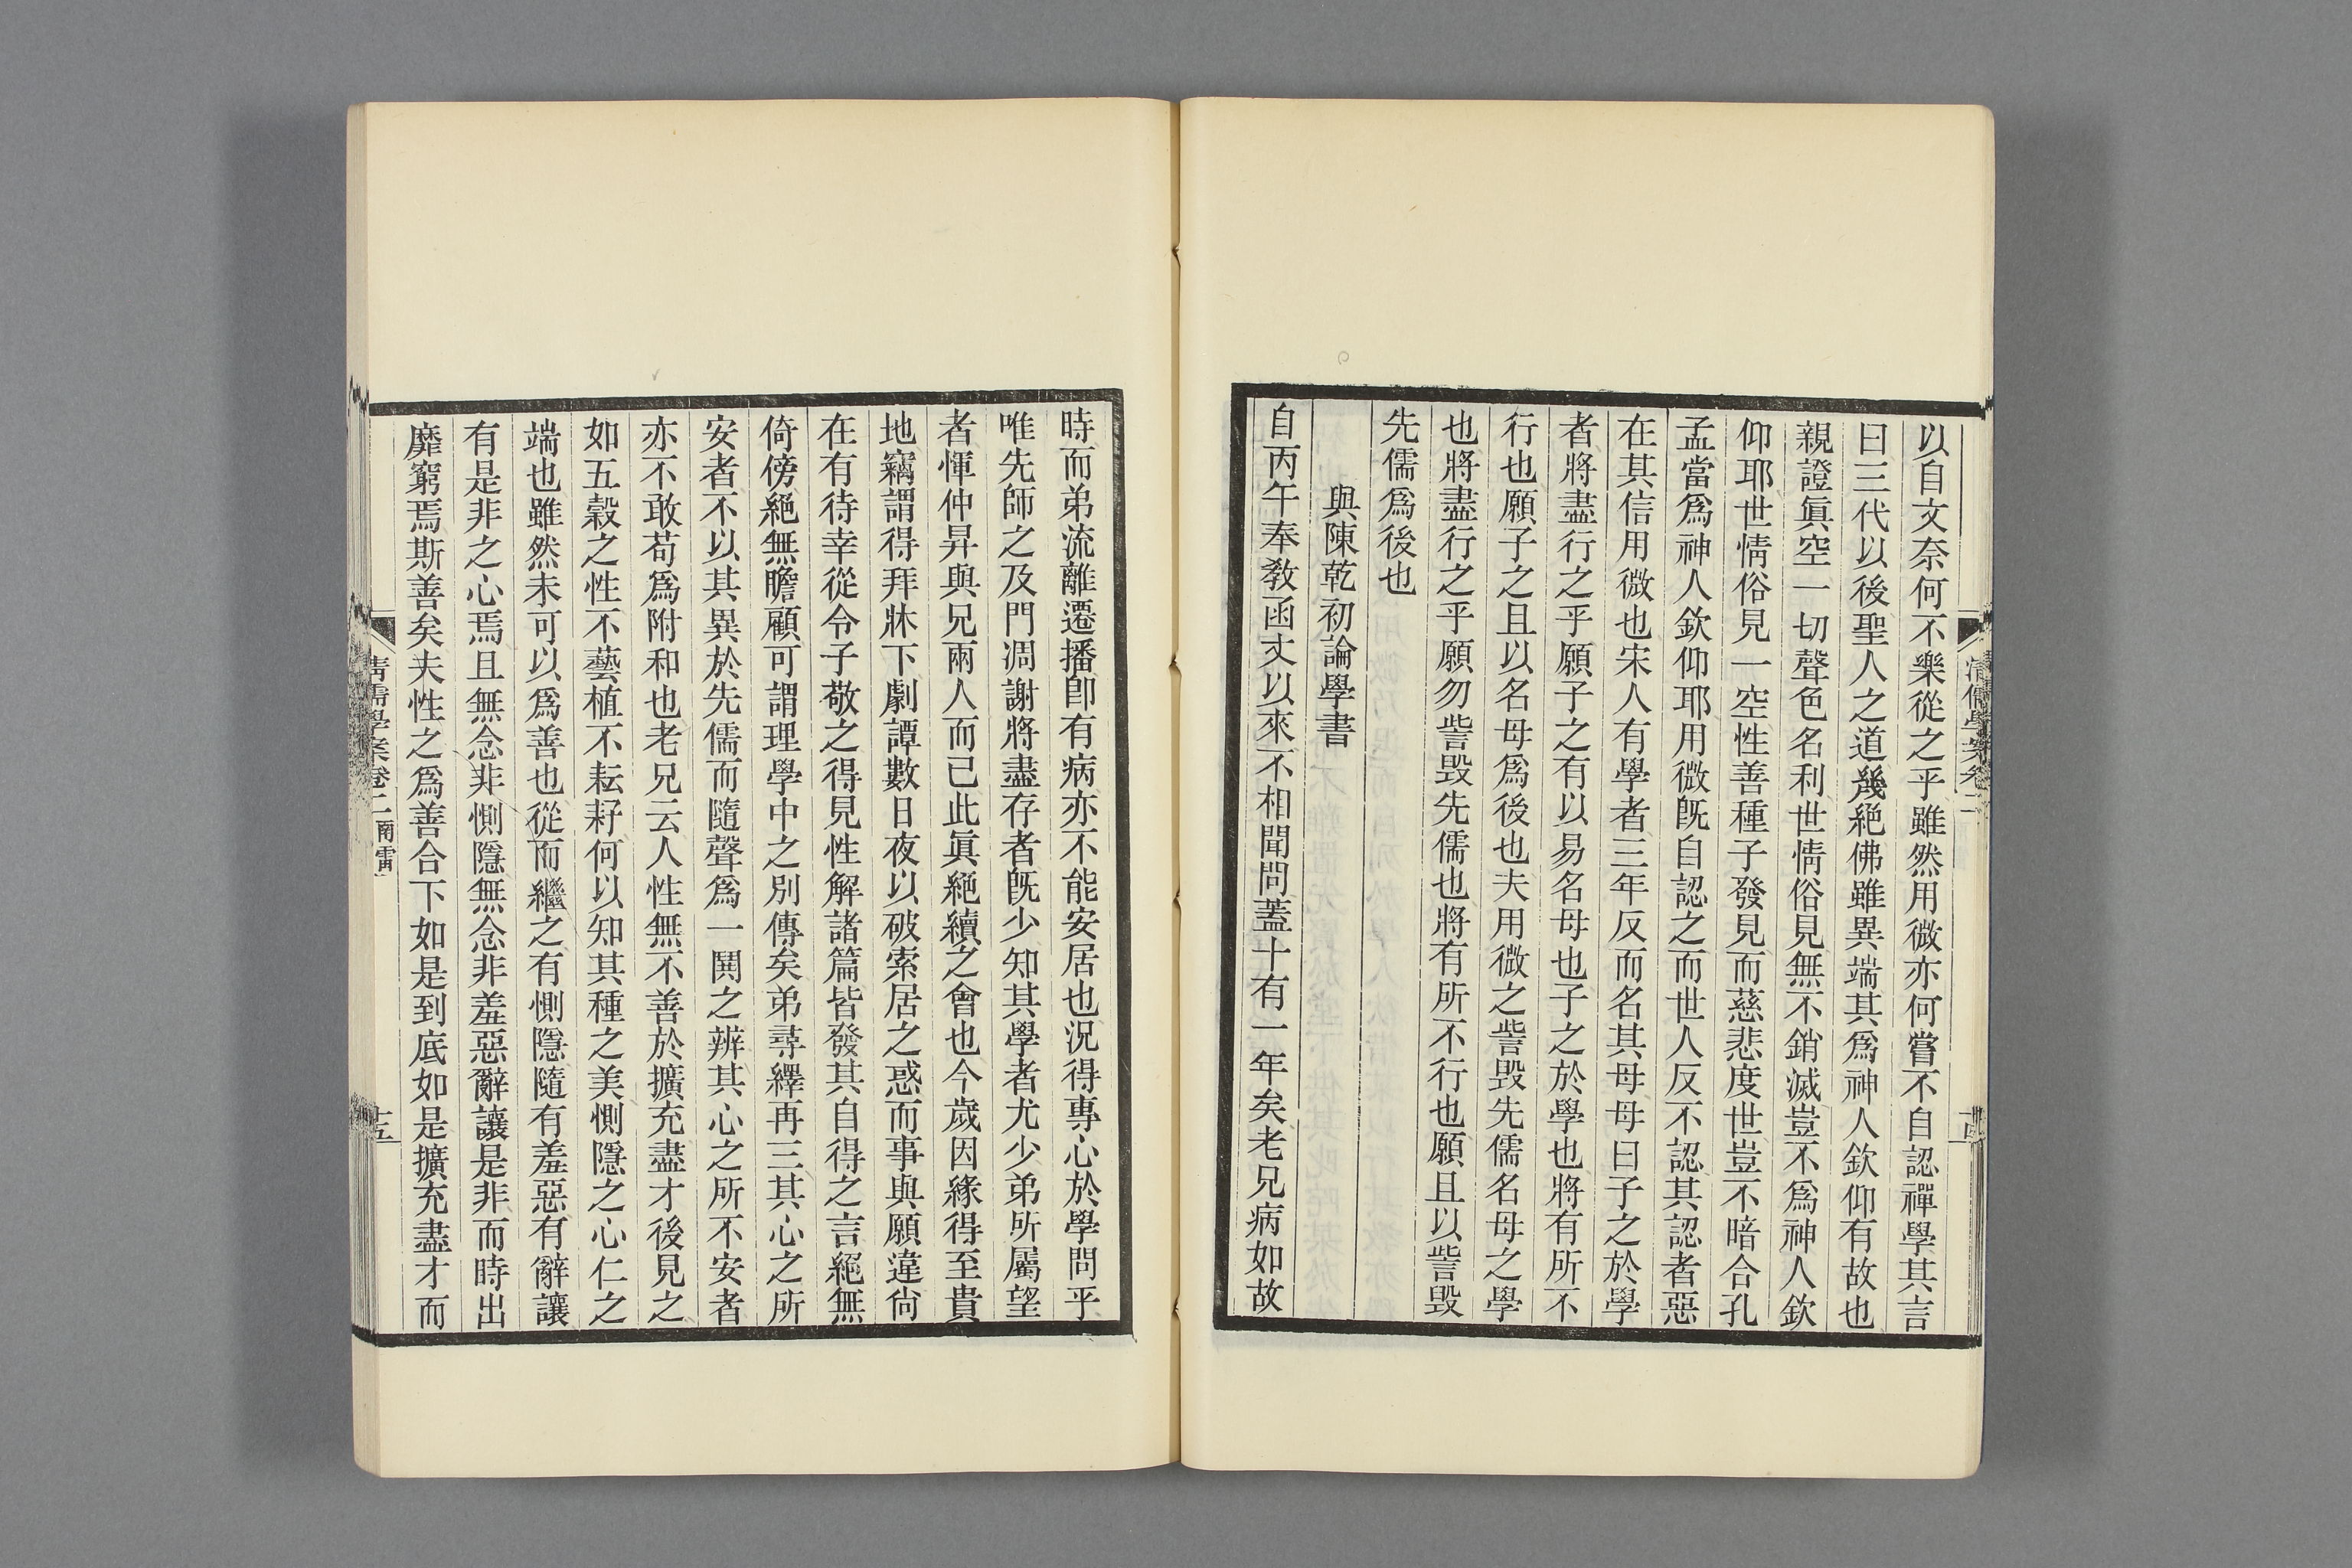 以自文奈何不樂從之乎雖然用微亦何嘗不自認禪學其言
曰三代以後聖人之道幾絕佛雖異端其爲神人欽仰有故也
親證眞空一切聲色名利世情俗見無不銷滅豈不爲神人欽
仰耶世情俗見一空性善種子發見而慈悲度世豈不暗合孔
孟當爲神人欽仰耶用微旣自認之而世人反不認其認者惡
在其信用微也宋人有學者三年反而名其母母曰子之於學
者將盡行之乎願子之有以易名母也子之於學也將有所不
行也願子之且以名母爲後也夫用微之訾毀先儒名母之學
也將盡行之乎願勿訾毀先儒也將有所不行也願且以訾毀
先儒爲後也
與陳乾初論學書
自丙午奉敎函丈以來不相聞問蓋十有一年矣老兄病如故
時而弟流離遷播卽有病亦不能安居也況得專心於學問乎
唯先師之及門凋謝將盡存者旣少知其學者尤少弟所屬望
者惲仲昇與兄兩人而已此眞絕續之會也今歲因緣得至貴
地竊謂得拜牀下劇譚數日夜以破索居之惑而事與願違尙
在有待幸從令子敬之得見性解諸篇皆發其自得之言絕無
倚傍絕無瞻顧可謂理學中之別傳矣弟尋繹再三其心之所
安者不以其異於先儒而隨聲爲一鬨之辨其心之所不安者
亦不敢苟爲附和也老兄云人性無不善於擴充盡才後見之
如五穀之性不藝植不耘耔何以知其種之美惻隱之心仁之
端也雖然未可以爲善也從而繼之有惻隱隨有羞惡有辭讓
有是非之心焉且無念非惻隱無念非羞惡辭讓是非而時出
靡窮焉斯善矣夫性之爲善合下如是到底如是擴充盡才而
清儒學案卷二 南雷
十五